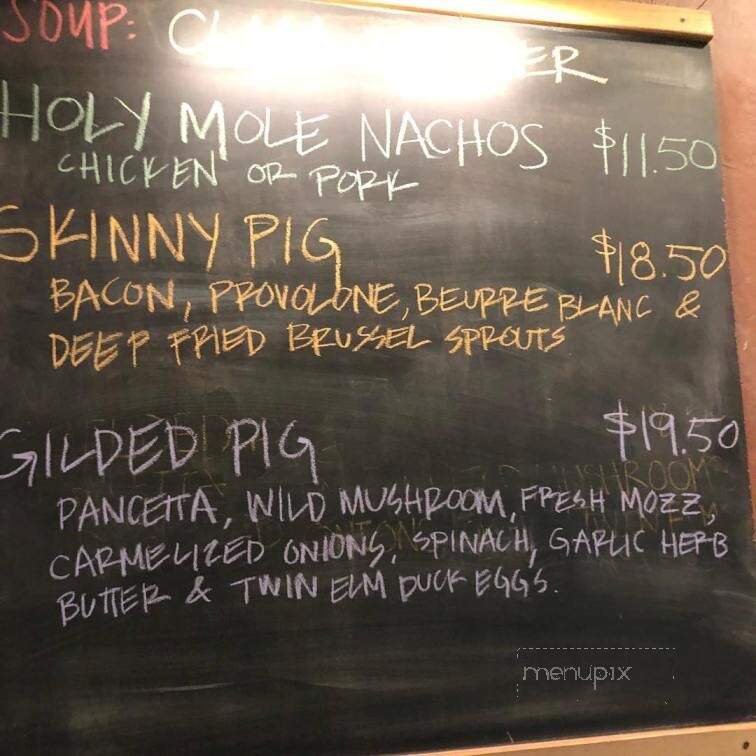 SOUP:
HOLY MOLE NACHOS $11.50
CHICKEN OR PORK
SKINNY PIG $18.50
BACON, PROVOLONE, BEURRE BLANC &
DEEP FRIED BRUSSEL SPROUTS
GILDED PIG $19.50
PANCETTA, WILD MUSHROOM, FRESH MOZZ,
CARMELIZED ONIONS, SPINACH, GARLIC HERB
BUTTER & TWIN ELM DUCK EGGS.
menupix